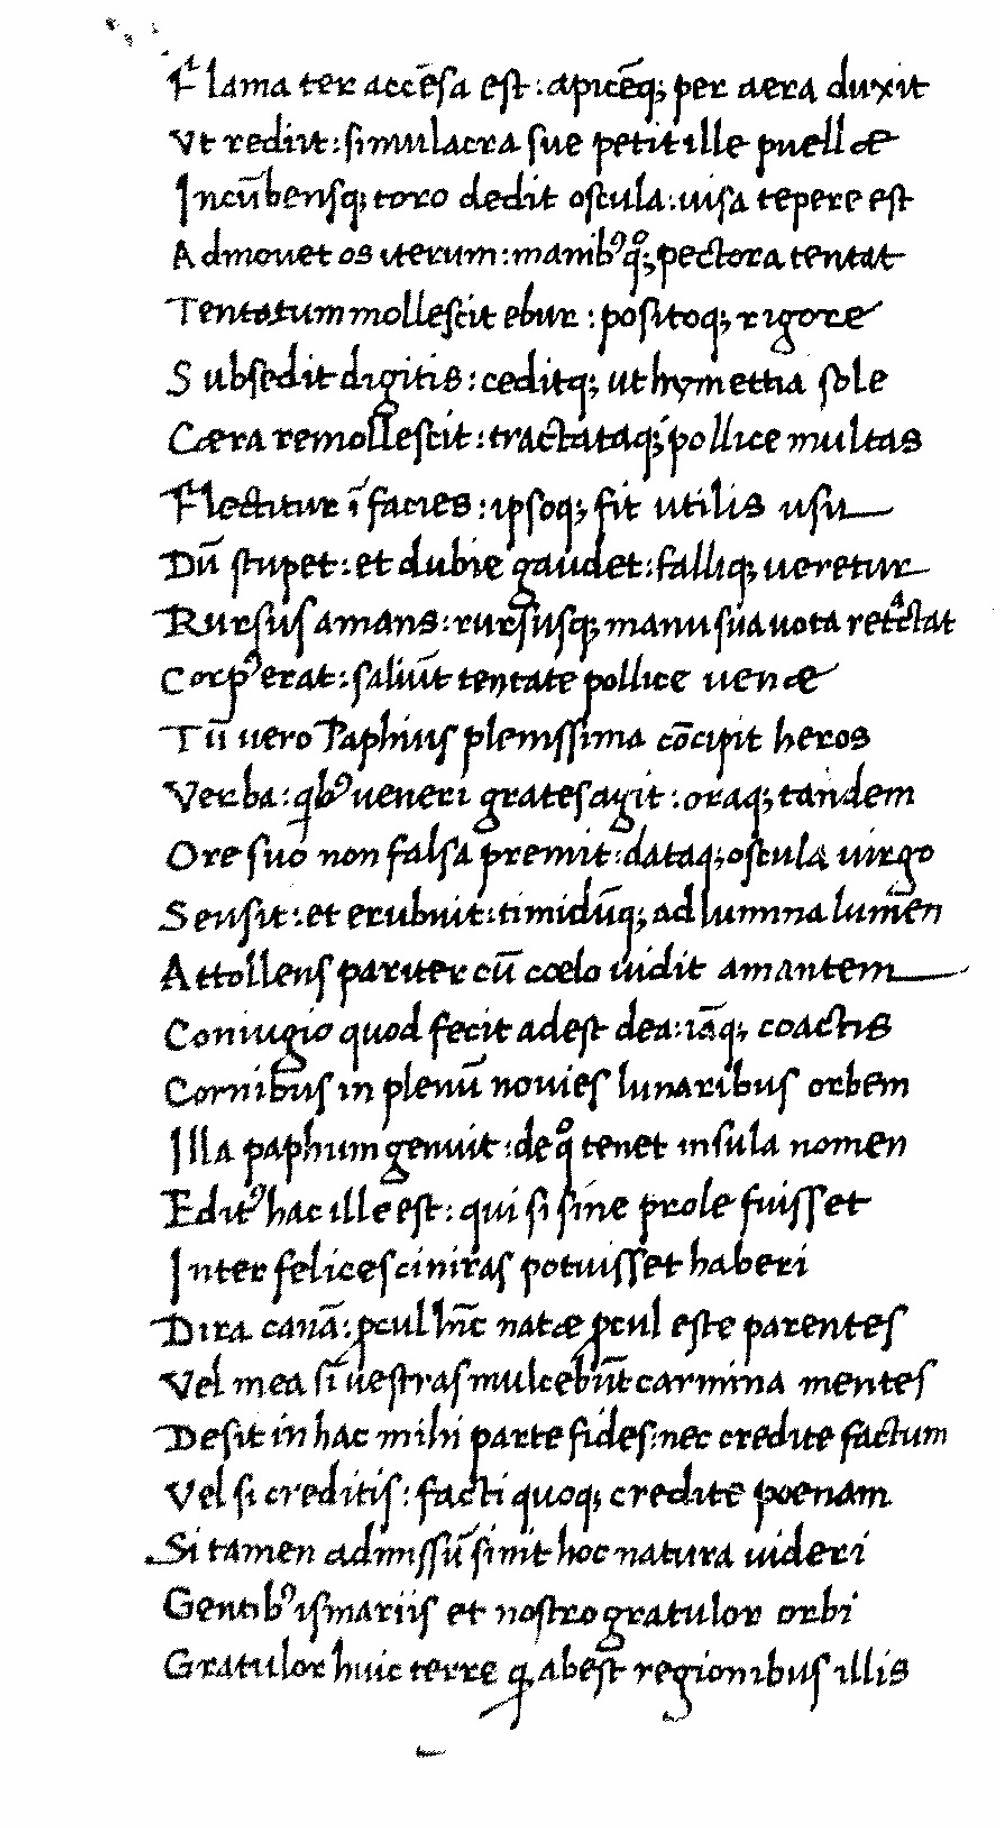 Flama ter accēsa est: apicēq; per aera duxit
Ut rediit: simulacra sue petit ille puellæ
Incūbensq; toro dedit oscula: uisa tepere est
Admouet os iterum: manibꝰ qͦ; pectora tentat
Tentatum mollescit ebur: positoq; rigore
Subsedit digitis: ceditq; ut hymettia sole
Cæra remollescit: tractataq; pollice multas
Flectitur ī facies: ipsoq; fit utilis usu
Dū stupet: et dubie gaudet: falliq; ueretur
Rursus amans: rursusq; manu sua uota retractat
Corpꝰ erat: saliūt tentate pollice uenæ
Tū uero Paphius plenissima cōcipit heros
Verba: qbꝰ ueneri grates agit: oraq; tandem
Ore suo non falsa premit: dataq; oscula uirgo
Sensit: et erubuit: timidūq; ad lumina lumen
Attollens pariter cū cœlo uidit amantem
Coniugio quod fecit adest dea: iāq; coactis
Cornibus in plenū nouies lunaribus orbem
Illa paphum genuit: de qͦ tenet insula nomen
Editꝰ hac ille est: qui si sine prole fuisset
Inter felices ciniras potuisset haberi
Dira canā: ꝓcul hīc natæ ꝓcul este parentes
Vel mea sī uestras mulcebūt carmina mentes
Desit in hac mihi parte fides: nec credite factum
Vel si creditis: facti quoq; credite poenam
Si tamen admissū sinit hoc natura uideri
Gentibꝰ ismariis et nostro gratulor orbi
Gratulor huic terre ꝙ abest regionibus illis